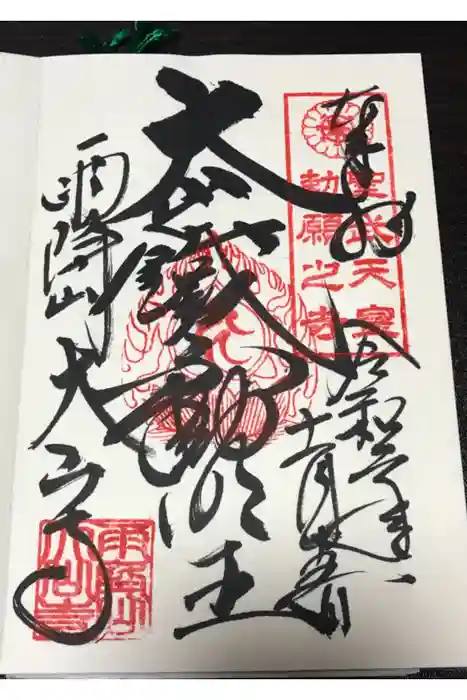 奉拝
聖武天皇
勅願之寺
令和
十一月
大山鐵不動明王
雨降山
大山寺
雨降山
大山寺